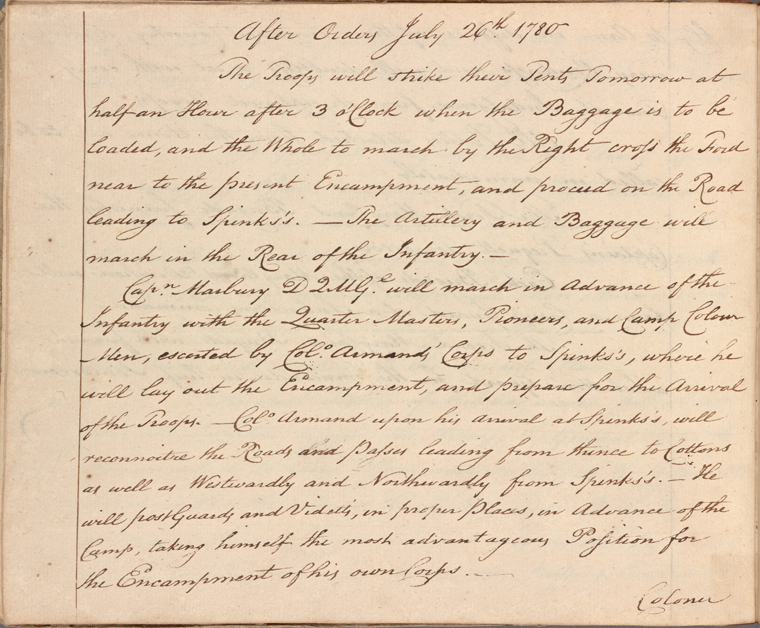 After Orders July 26th 1780
The Troops will strike their Tents Tomorrow at
half an Hour after 3 o'Clock when the Baggage is to be
loaded, and the Whole to march by the Right cross the Ford
near to the present Encampment, and proceed on the Road
leading to Spinks's. — The Artillery and Baggage will
march in the Rear of the Infantry. —
Capn. Marbury D Q M Gl. will march in Advance of the
Infantry with the Quarter Masters, Pioneers, and Camp Colour
Men, escorted by Colo. Armands' Corps to Spinks's, where he
will lay out the Encampment, and prepare for the Arrival
of the Troops. — Colo. Armand upon his arrival at Spinks's, will
reconnoitre the Roads and Passes leading from thince to Cottons
as well as Westwardly and Northwardly from Spinks's. — He
will post Guards and Videtts, in proper Places, in Advance of the
Camp, taking himself the most advantageous Position for
the Encampment of his own Corps. —
Colonel